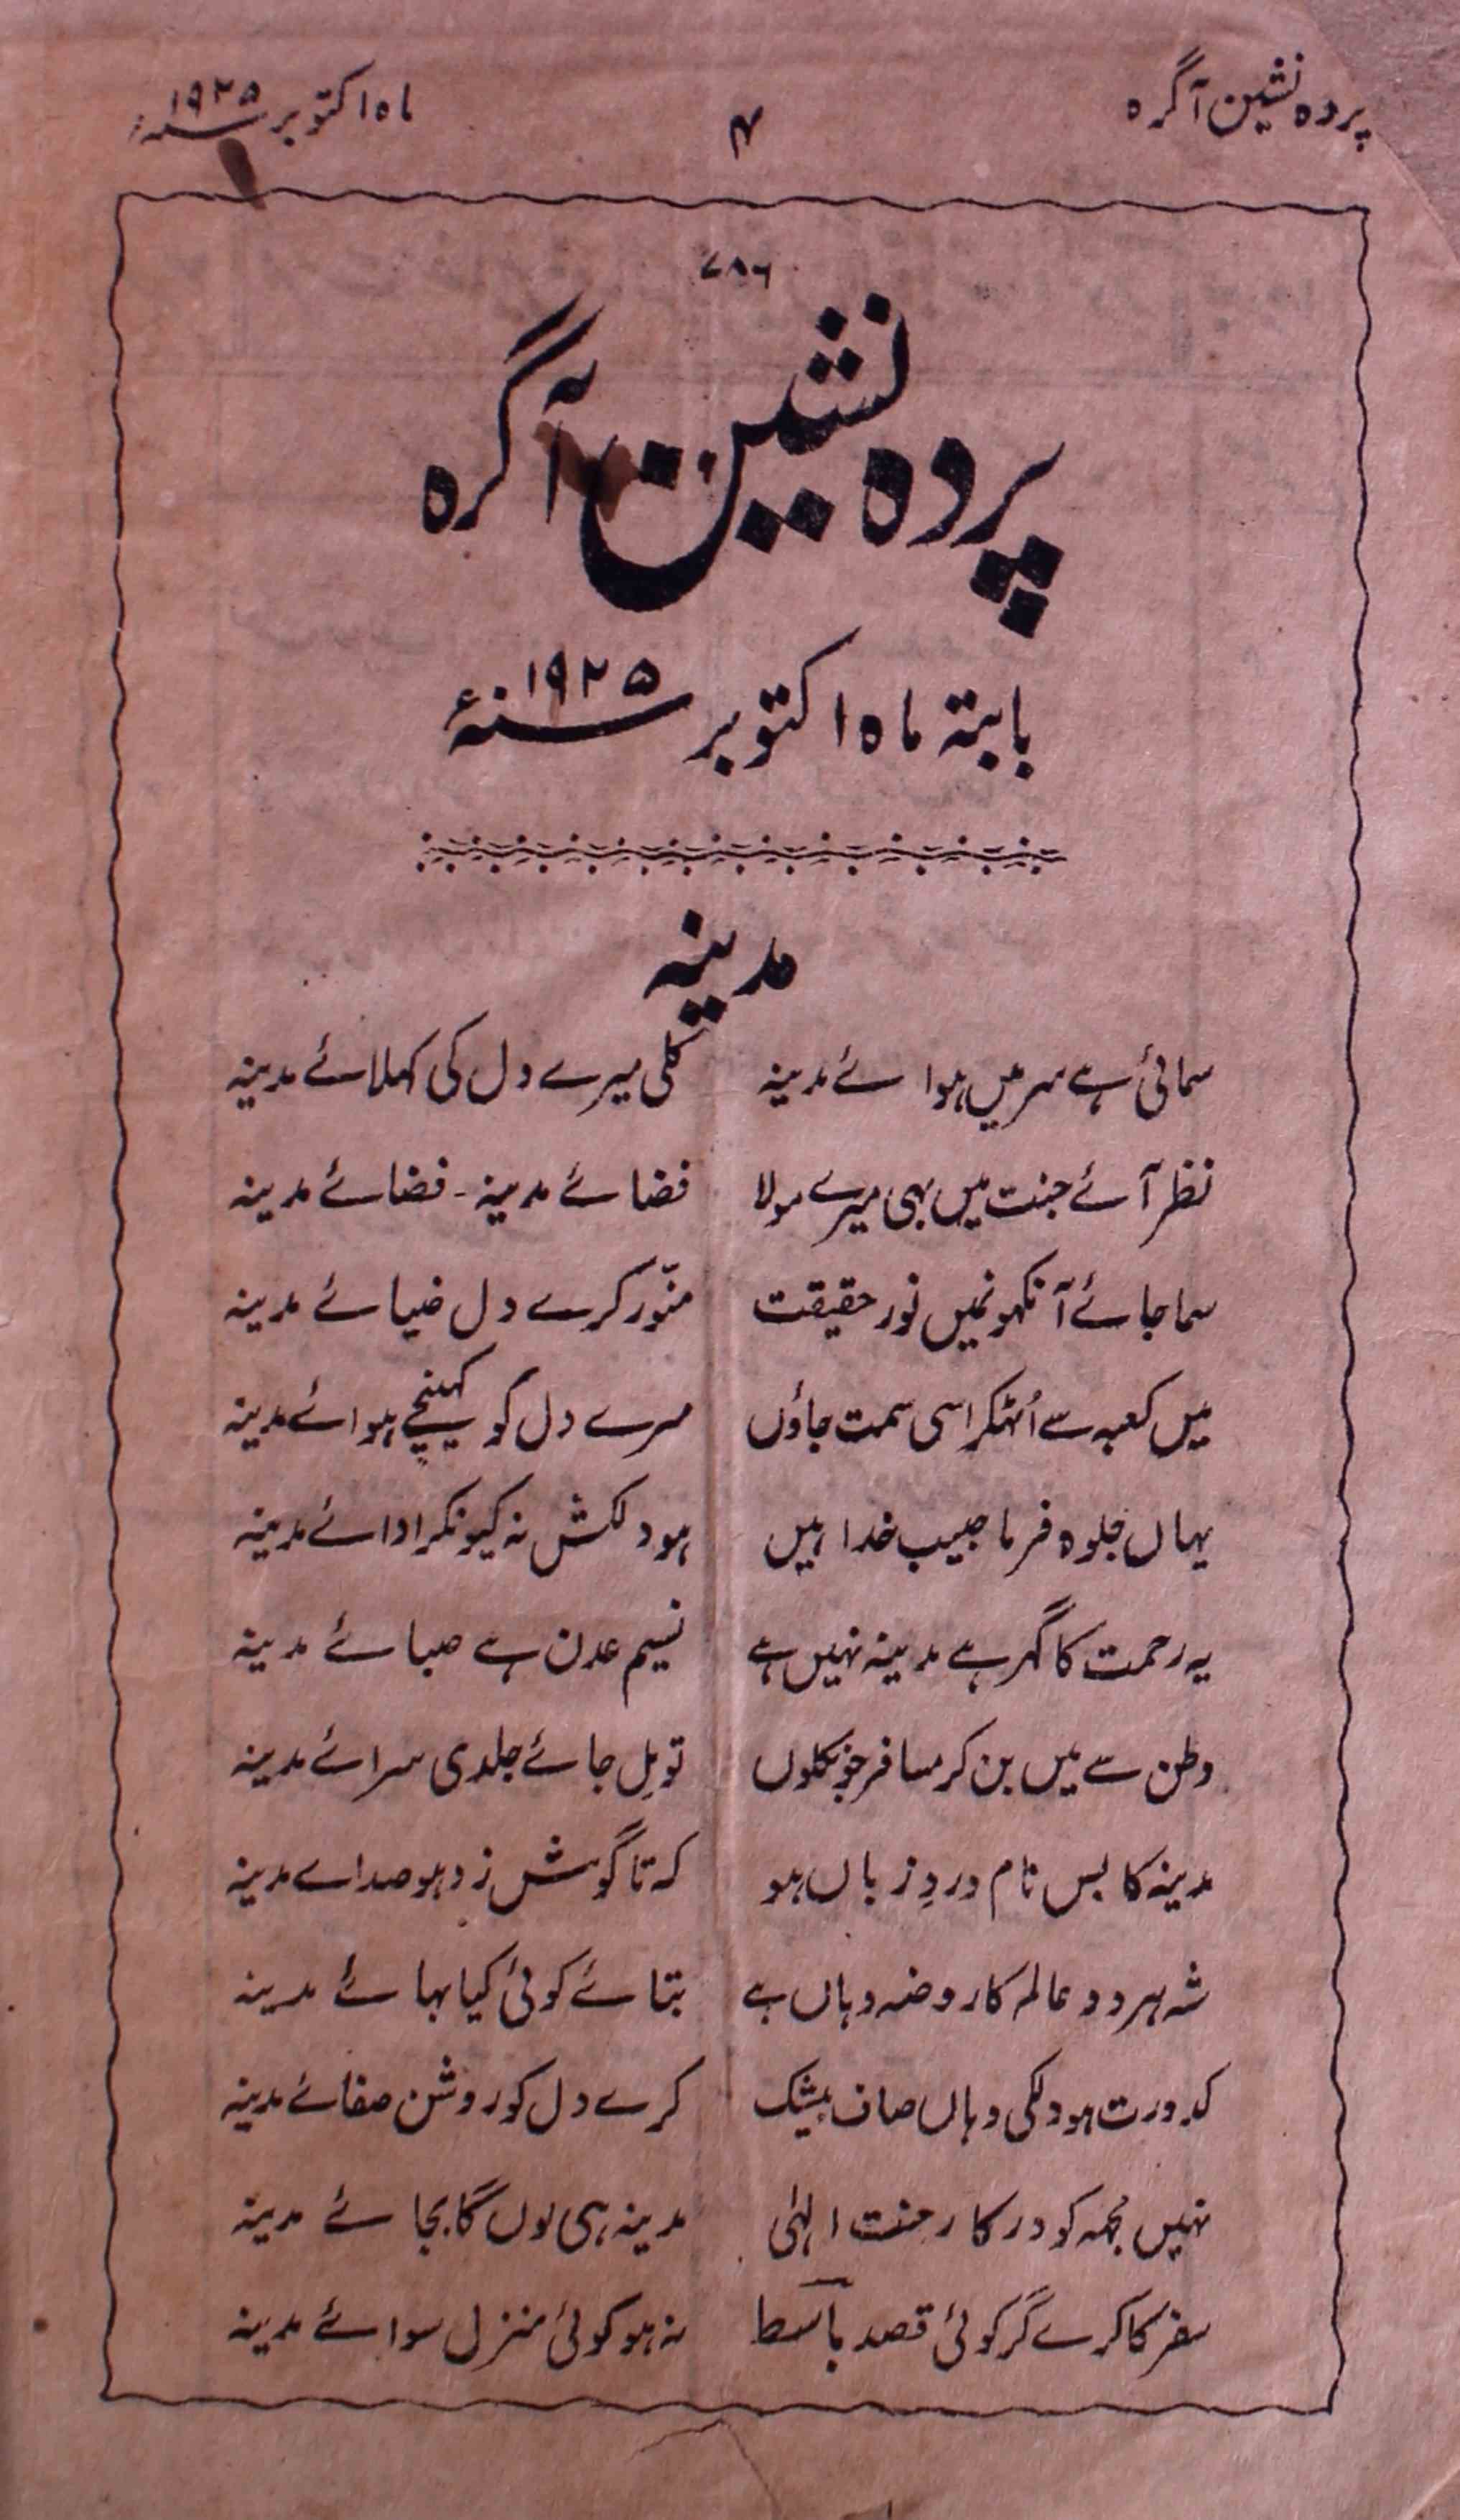 پردہ نشین آگرہ ۴ ماہ اکتوبر سنہ ۱۹۲۵ء
۷۸۶
پردہ نشین آگرہ
بابتہ ماہ اکتوبر سنہ ۱۹۲۵ء
مدینہ
سمائی ہے سر میں ہوائے مدینہ کلی میرے دل کی کہلائے مدینہ
نظر آئے جنت میں بہی میرے مولا فضائے مدینہ - فضائے مدینہ
سما جائے آنکہونمیں نور حقیقت منّور کرے دل ضیائے مدینہ
میں کعبہ سے اُٹہکر اسی سمت جاؤں مرے دل کو کہینچے ہوائے مدینہ
یہاں جلوہ فرما حبیب خدا ہیں ہو دلکش نہ کیونکر ادائے مدینہ
یہ رحمت کا گہر ہے مدینہ نہیں ہے نسیم عدن ہے صبائے مدینہ
وطن سے میں بن کر مسافر جو نکلوں تو مِل جائے جلدی سرائے مدینہ
مدینہ کا بس نام وردِ زباں ہو کہ تا گوش زد ہو صداے مدینہ
شہ ہر دو عالم کا روضہ وہاں ہے بتائے کوئی کیا بہائے مدینہ
کدورت ہو دلکی وہاں صاف بیشک کرے دل کو روشن صفائے مدینہ
نہیں مجہہ کو درکار جنت الہٰی مدینہ ہی لوں گا بجائے مدینہ
سفر کا کرے گر کوئی قصد باسط نہ ہو کوئی منزل سوائے مدینہ